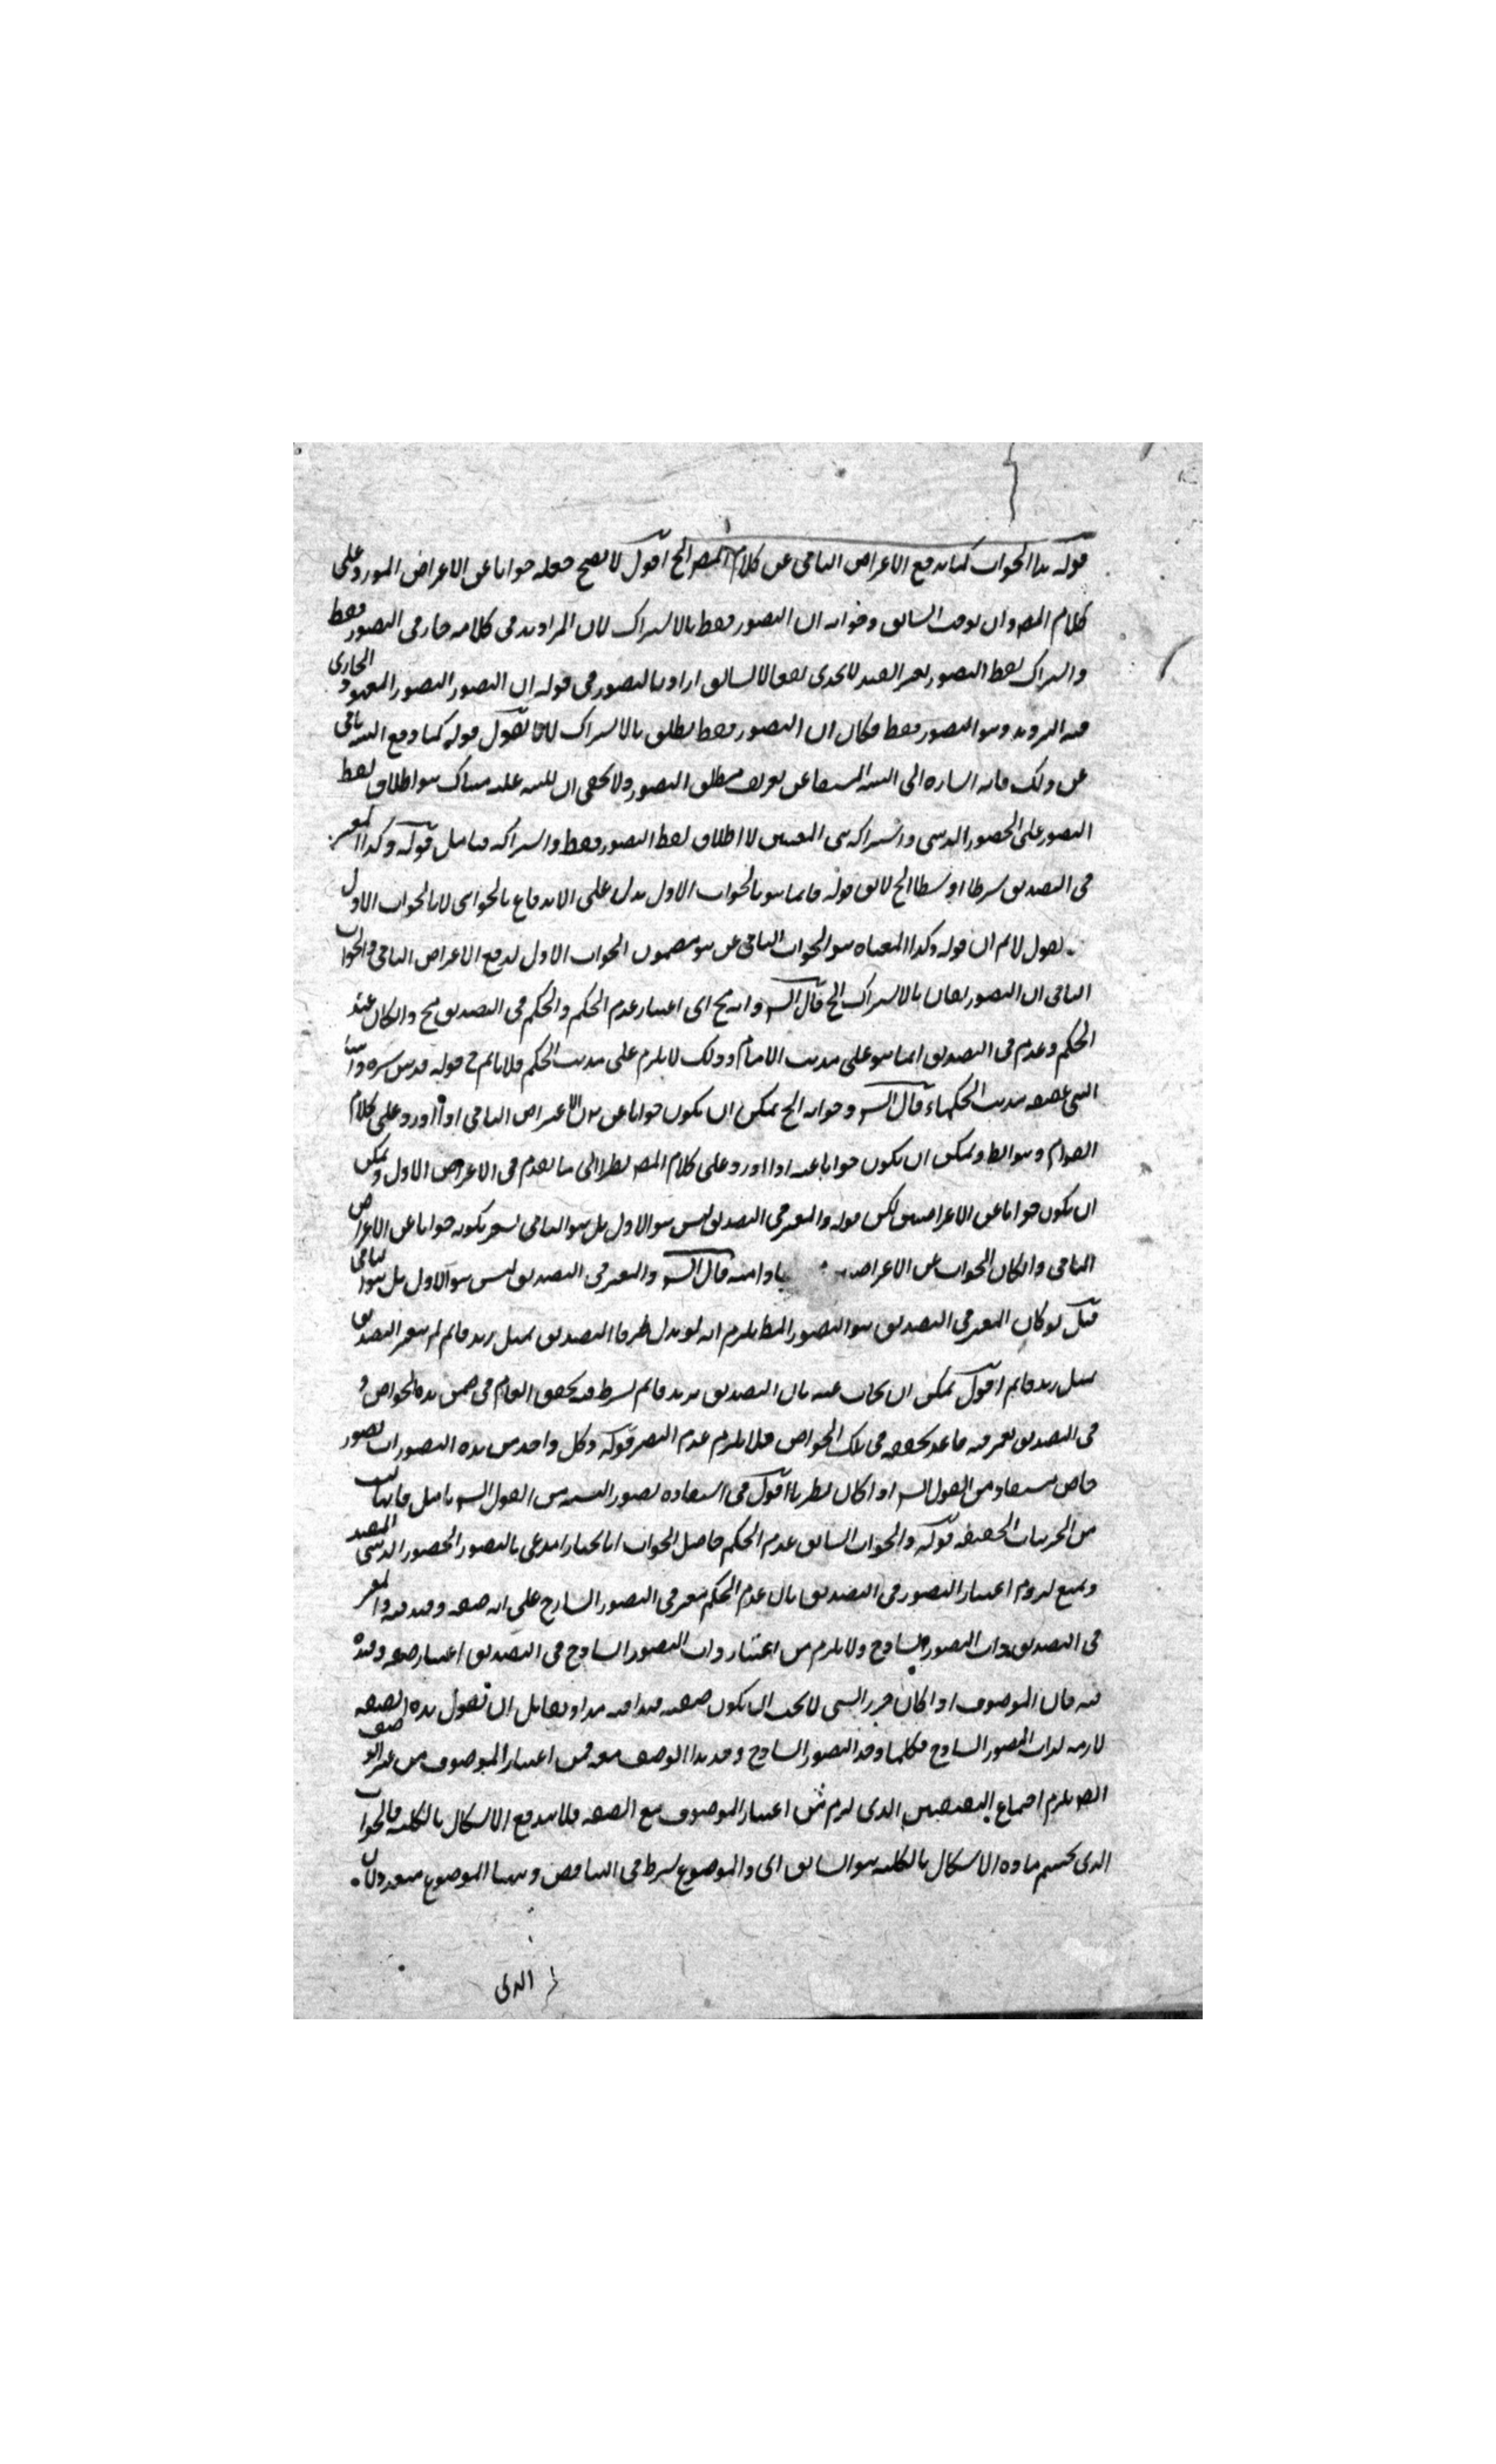 قوله هذا الجواب كما يدفع الاعتراض الثاني عن كلام المص الخ اقول لا يصح جعله جوابا عن الاعتراض المورد على
كلام المص وان التصور فقط بالاشتراك لان المراد به في كلامه في التصور فقط
واشتراك لفظ التصور بغير القيد لا يجدي نفعا اراد بالتصور في قوله ان التصور التصور المعهود الجاري
فيه الترديد وهو التصور فقط فكان ان التصور فقط يطلق بالاشتراك لانا نقول قوله كما دفع الثاني
عن ذلك فانه اشارة الى عن تعريف مطلق التصور ولا يخفى ان هناك هو اطلاق لفظ
التصور على الحضور الذهني واشتراكه لا اطلاق لفظ التصور فقط واشتراكه فتامل قوله وكذا المعتبر
في التصديق شرطا او شطرا الخ قوله بالجواب الاول يدل على الاندفاع بالجواب لا بالجواب الاول
نقول لا نم ان قوله وكذا معناه هو الجواب الثاني عن هو مضمون الجواب الاول لدفع الاعتراض الثاني والجواب
الثاني ان التصور يقال بالاشتراك الخ قال الش وانه مح اي اعتبار عدم الحكم والحكم في التصديق مح والكان عند
الحكم وعدمه في التصديق انما هو على مذهب الامام وذلك لا يلزم على مذهب الحكم فلا يلائم ح قوله قدس سره
مذهب الحكماء قال الش وجوابه الخ يمكن ان يكون جوابا عن الاعتراض الثاني اذا اورد على كلام
القوم وهو الظ ويمكن ان يكون جوابا عنه اذا اورد على كلام المص نظرا الى ما تقدم في الاعتراض الاول ويمكن
ان يكون جوابا عن الاعتراضين لكن قوله والمعتبر في التصديق ليس هو الاول بل هو الثاني يشعر بكونه جوابا عن الاعتراض
الثاني والكان الجواب عن الاعتراض قال الش والمعتبر في التصديق ليس هو الاول بل هو الثاني
قيل لو كان المعتبر في التصديق هو التصور المط يلزم انه لو بدل طرفا التصديق بمثل زيد قائم لم يتغير التصديق
بمثل زيد قائم اقول يمكن ان يجاب عنه بان التصديق بزيد قائم يشترط فيه تحقق العام في ضمن هذه الخواص و
في التصديق بعمرو فيه قاعد تحققه في تلك الخواص فلا يلزم عدم التغير قوله وكل واحد من هذه التصورات تصور
خاص مستفاد من القول الش اذا كان نظريا اقول في استفادة تصور النسبة من القول الش تامل فانها ليست
من الجزئيات الحقيقية قوله والجواب السابق عدم الحكم حاصل الجواب انا نختار المدعى بالتصور الحضور الذهني المقيد
ونمنع لزوم اعتبار التصور في التصديق بان عدم الحكم معتبر في التصور الساذج على انه صفة وقيد فيه والمعتبر
في التصديق ذات التصور الساذج ولا يلزم من اعتبار ذات التصور الساذج في التصديق اعتبار صفته وقيده
فيه فان الموصوف اذا كان جزء الشي لا يجب ان يكون صفته قيدا فيه هذا ولقائل ان يقول هذه الصفة
لازمة لذات التصور الساذج فكلما وجد التصور الساذج وجد هذا الوصف معه فمن اعتبار الموصوف من غير الوصف
ايضا يلزم اجتماع النقيضين الذي لزم من اعتبار الموصوف مع الصفة فلا يندفع الاشكال بالكلية فالجواب
الذي يحسم مادة الاشكال بالكلية هو السابق اي الموضوع شرط في التناقض وههنا الموضوع متعدد لان
الذي